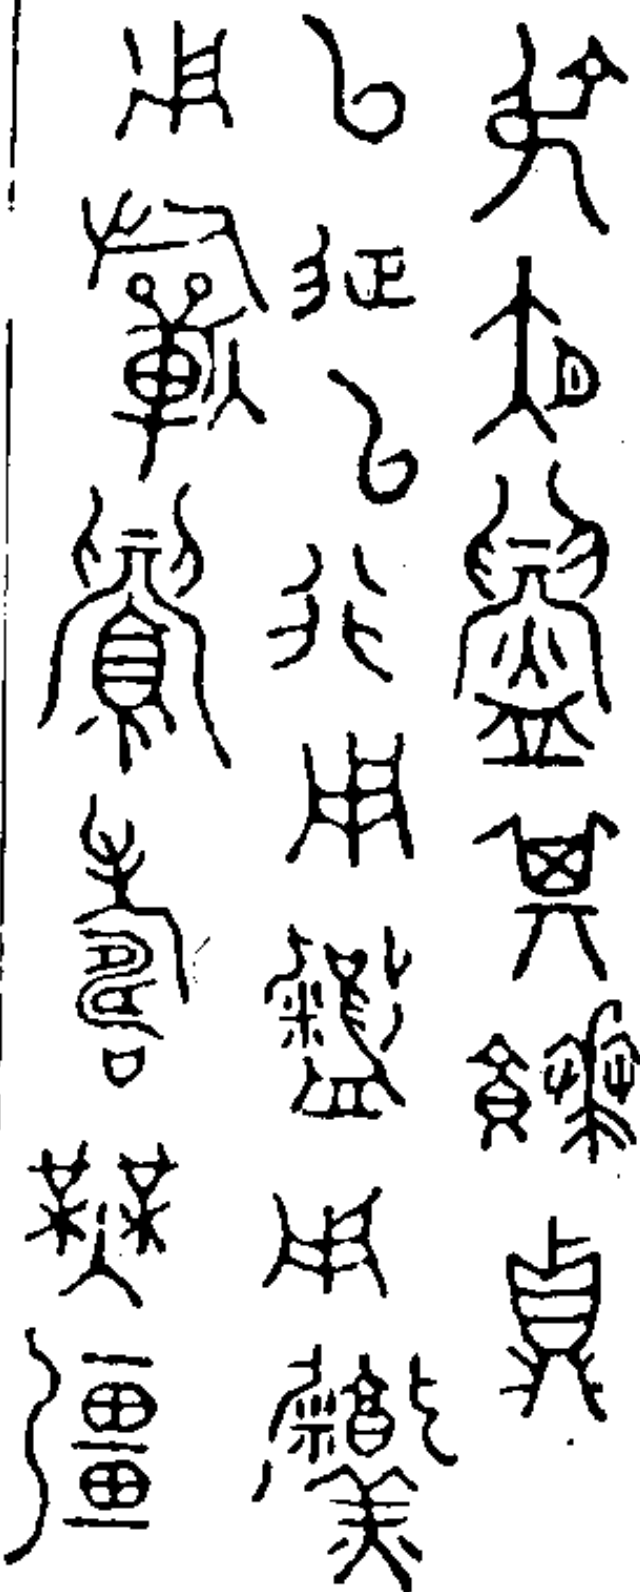 叔夜鑄其饙鼎
以征以行用鬻用烹
用祈眉壽無疆